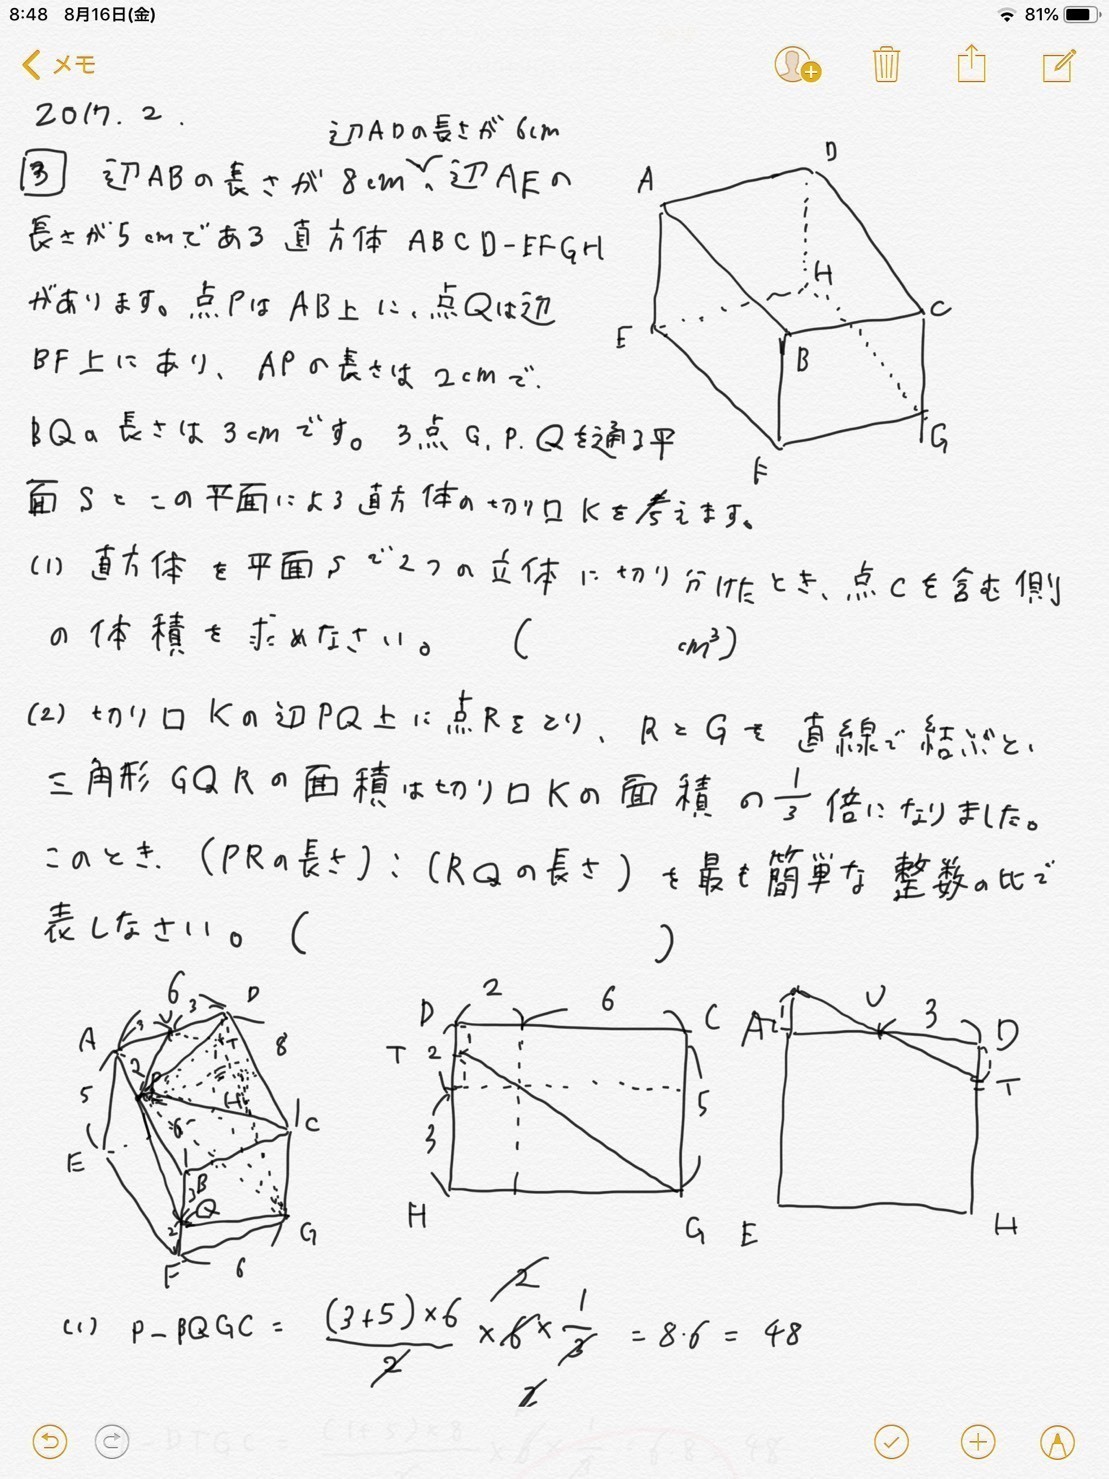 8:48 8月16日(金)
81%
メモ
2017. 2.
辺ADの長さが 6cm
3 辺ABの長さが 8cm、辺AEの
長さが5cmである直方体 ABCD-EFGH
があります。点PはAB上に、点Qは辺
BF上にあり、APの長さは 2cmで、
BQの長さは3cmです。3点 G, P, Qを通る平
面Sとこの平面による直方体の切り口Kを考えます。
(1) 直方体を平面Sで2つの立体に切り分けたとき、点Cを含む側
の体積を求めなさい。( cm³)
(2) 切り口Kの辺PQ上に点Rをとり、RとGを直線で結ぶと、
三角形GQRの面積は切り口Kの面積の 1/3 倍になりました。
このとき、(PRの長さ):(RQの長さ)を最も簡単な整数の比で
表しなさい。( )
A
D
H
E
B
C
G
F
6
D
A
3
U
3
T
8
2
P
5
H
6
C
E
B
3
Q
2
G
F
6
D
2
6
C
T
2
5
3
H
G
A
U
3
D
T
E
H
(1) P-BQGC = (3+5)×6/2 × 6 × 1/3 = 8・6 = 48
2
1